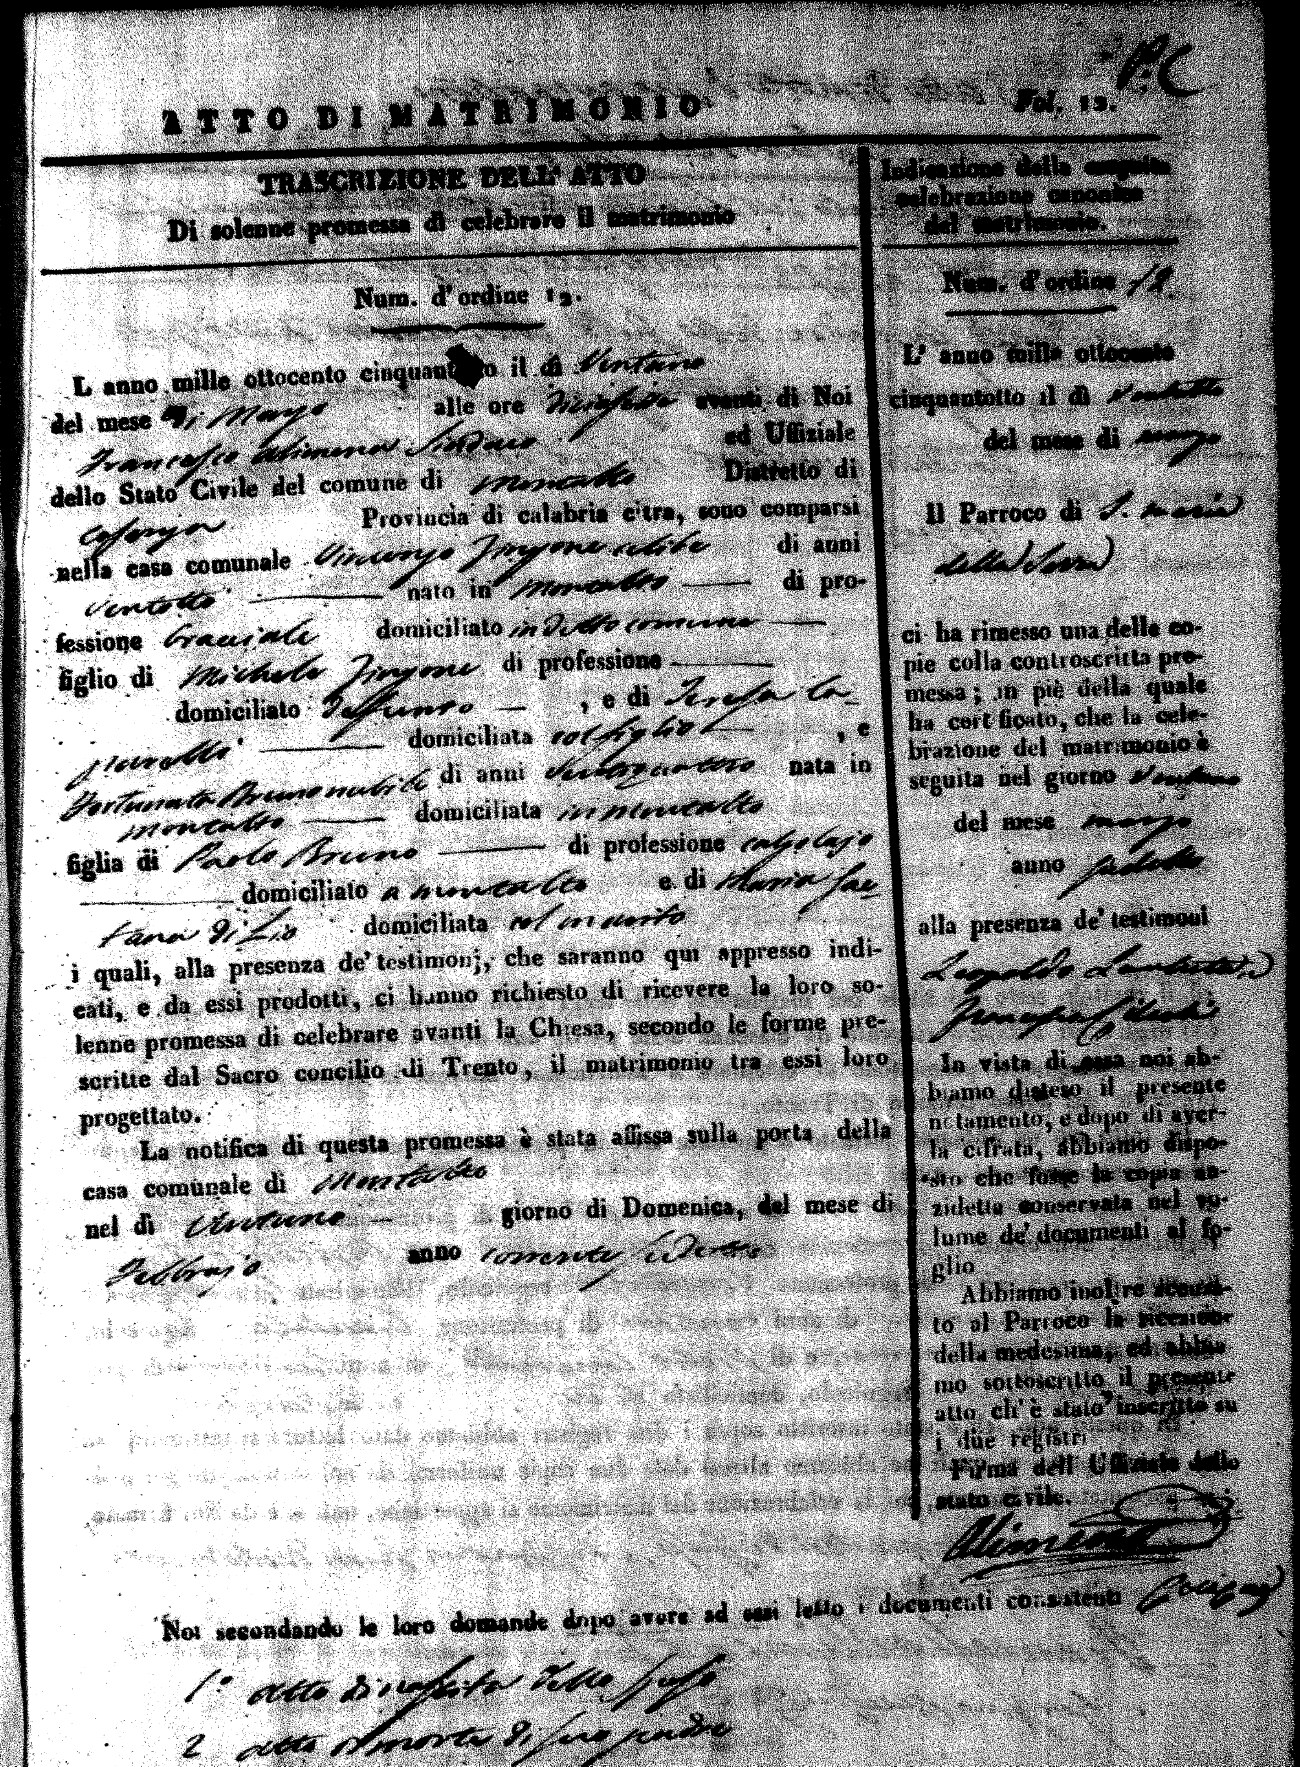 P. C
ATTO DI MATRIMONIO
Fol. 12.
TRASCRIZIONE DELL' ATTO
Di solenne promessa di celebrare il matrimonio
Num. d'ordine 12.
L anno mille ottocento cinquantotto il dì Ventuno
del mese di Marzo alle ore avanti di Noi
Francesco Alimena Sindaco ed Uffiziale
dello Stato Civile del comune di Montalto Distretto di
Cosenza Provincia di calabria citra, sono comparsi
nella casa comunale Vincenzo Zingone celibe di anni
ventotto nato in Montalto di pro-
fessione bracciale domiciliato in detto comune
figlio di Michele Zingone di professione
domiciliato defunto , e di Teresa
domiciliata col figlio , e
Fortunata Bruno nubile di anni ventiquattro nata in
Montalto domiciliata in Montalto
figlia di Paolo Bruno di professione calzolajo
domiciliato a Montalto e di Maria Gae-
tana di Lio domiciliata col marito
i quali, alla presenza de' testimonj, che saranno qui appresso indi-
cati, e da essi prodotti, ci hanno richiesto di ricevere la loro so-
lenne promessa di celebrare avanti la Chiesa, secondo le forme pre-
scritte dal Sacro concilio di Trento, il matrimonio tra essi loro
progettato.
La notifica di questa promessa è stata affissa sulla porta della
casa comunale di Montalto
nel dì ventuno giorno di Domenica, del mese di
Febbrajo anno corrente sudetto
Indicazione della seguita
celebrazione canonica
del matrimonio.
Num. d'ordine 12.
L' anno mille ottocento
cinquantotto il dì ventotto
del mese di marzo
Il Parroco di S. Maria
della Serra
ci ha rimesso una delle co-
pie colla controscritta pro-
messa; in piè della quale
ha certificato, che la cele-
brazione del matrimonio è
seguita nel giorno ventuno
del mese marzo
anno sudetto
alla presenza de' testimoni
Leopoldo
Francesco
In vista di essa noi ab-
biamo disteso il presente
notamento, e dopo di aver-
la cifrata, abbiamo dispo-
sto che fosse la copia an-
zidetta conservata nel vo-
lume de' documenti al fo-
glio
Abbiamo inoltre accusa-
to al Parroco la ricezione
della medesima, ed abbia-
mo sottoscritto il presente
atto ch' è stato inscritto su
i due registri
Firma dell' Uffiziale dello
stato civile.
Alimena
Noi secondando le loro domande dopo avere ad essi letto i documenti consistenti
1° atto di nascita dello sposo
2 atto di morte di suo padre